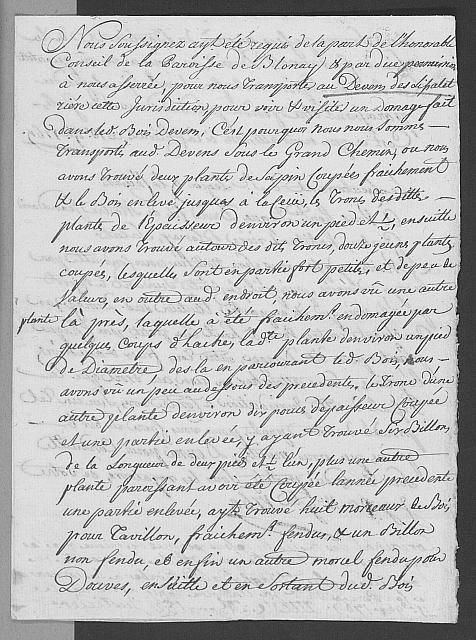 Nous soussignez ayt. été requis de la part de l'honorable
Conseil de la Paroisse de Blonay & par due permission
à nous asserée, pour nous transporter au Devens des
riere cette Jurisdiction pour voir & visiter un domage fait
dans led. Bois Devens, C'est pourquoi nous nous sommes
transportés aud. Devens sous le Grand Chemin, ou nous
avons trouvé deux plantes de sapin Coupées fraichement
& le Bois enlevé jusques à la Ceue, les Troncs desdittes
plantes de l'épaisseur d'environ un pied et ½, ensuitte
nous avons trouvé autour des dits Troncs, douze jeunes plantes
coupés, lesquelles sont en partie fort petites, et de peu de
valeur, en outre aud. endroit, nous avons vû une autre
plante là près, laquelle à été fraichemt. endomagée par
quelques coups d'hache, lade. plante d'environ un pied
de Diametre, des là en parcourant led. Bois, nous
avons vû un peu au dessous des precedentes, le Tronc d'une
autre plante d'environ dix pouces d'épaisseur Coupée
et une partie enlevée, y ayant trouvé six Billons
de la Longueur de deux pieds et ½ l'un, plus une autre
plante paroissant avoir été Coupée l'année precedente
une partie enlevée, ayt. trouvé huit morceaux de Bois
pour Tavillon, fraichemt. fendus, & un Billon
non fendu, et enfin un autre morcel fendu pour
Douves, ensuitte et en sortant dud. Bois